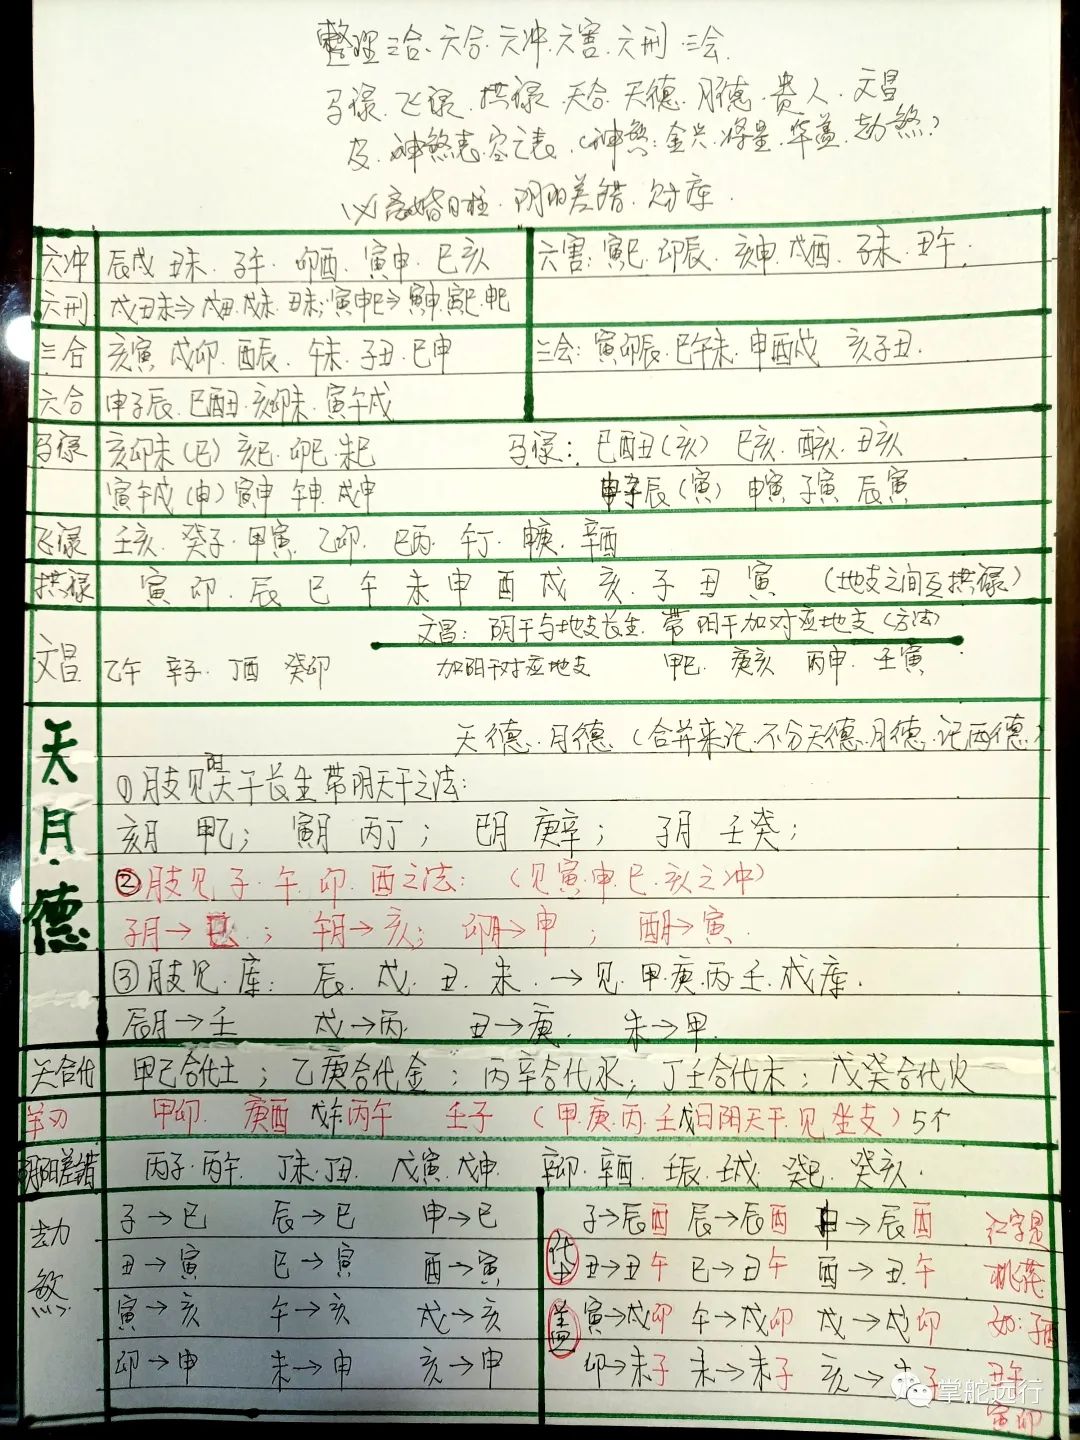 整理三合.六合.六冲.六害.六刑.三会.
马禄.飞禄.拱禄 天合.天德.月德.贵人.文昌
及.神煞表.空亡表.(神煞:金兴.将星.华盖.劫煞)
以离婚日柱.阴阳差错.财库.
六冲 辰戌 丑未. 子午. 卯酉. 寅申. 巳亥
六害: 寅巳. 卯辰. 亥申. 戌酉. 子未. 丑午.
六刑 戌丑未⇒戌丑.戌未.丑未; 寅申巳⇒寅申.寅巳.申巳
三合 亥寅. 戌卯. 酉辰. 午未. 子丑. 巳申
三会: 寅卯辰. 巳午未. 申酉戌 亥子丑.
六合 申子辰. 巳酉丑. 亥卯未. 寅午戌
马禄 亥卯未(巳) 亥巳. 卯巳. 未巳 马禄: 巳酉丑(亥) 巳亥. 酉亥. 丑亥
寅午戌(申) 寅申 午申. 戌申 申子辰(寅) 申寅 子寅 辰寅
飞禄 壬亥. 癸子. 甲寅. 乙卯. 巳丙. 午丁. 申庚. 辛酉
拱禄 寅 卯 辰 巳 午 未 申 酉 戌 亥 子 丑 寅 (地支之间互拱禄)
文昌: 阴干与地支长生. 带阳干加对应地支(方法)
文昌 乙午 辛子. 丁酉 癸卯 加阳干对应地支 甲巳. 庚亥 丙申. 壬寅
天德.月德(合并来记.不分天德.月德.记两德)
天.月.德
①月支见阳天干长生带阴天干之法:
亥月 甲乙; 寅月 丙丁; 巳月 庚辛; 子月 壬癸;
②月支见子.午.卯.酉之法: (见寅.申.巳.亥之冲)
子月→巳; 午月→亥; 卯月→申; 酉月→寅.
③月支见.库: 辰. 戌. 丑. 未. →见.甲.庚.丙.壬.成库.
辰月→壬 戌→丙 丑→庚. 未→甲.
天合代 甲己合代土; 乙庚合代金; 丙辛合代水; 丁壬合代木; 戊癸合代火
羊刃 甲卯. 庚酉 戊午 丙午 壬子 (甲.庚.丙.壬戊日阳天干.见坐支)5个
阴阳差错 丙子.丙午. 丁未.丁丑. 戊寅.戊申. 辛卯.辛酉. 壬辰.壬戌. 癸巳. 癸亥.
劫煞
子→巳 辰→巳 申→巳
丑→寅 巳→寅 酉→寅
寅→亥 午→亥 戌→亥
卯→申 未→申 亥→申
华盖
子→辰酉 辰→辰酉 申→辰酉 红字是
丑→丑午 巳→丑午 酉→丑午 桃花
寅→戌卯 午→戌卯 戌→戌卯 如:子酉
卯→未子 未→未子 亥→未子 丑午
寅卯
掌舵远行